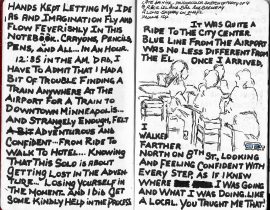 HANDS KEPT LETTING MY IDEAS
AND IMAGINATION FLY AND
FLOW FEVERISHLY IN THIS
NOTEBOOK. CRAYONS, PENCILS,
PENS, AND ALL... IN AN HOUR.
12:35 IN THE AM. DAD, I
HAVE TO ADMIT THAT I HAD A
BIT OF TROUBLE FINDING A
TRAIN ANYWHERE AT THE
AIRPORT FOR A TRAIN TO
DOWNTOWN MINNEAPOLIS...
AND STRANGELY ENOUGH, FELT
A BIT ADVENTUROUS AND
CONFIDENT—FROM RIDE TO
WALK TO HOTEL... KNOWING
THAT THIS SOLO IS ABOUT
GETTING LOST IN THE ADVEN-
TURE... LOSING YOURSELF IN
THE MOMENT. AND I DID GET
SOME KINDLY HELP IN THE PROCESS.
IT WAS QUITE A
RIDE TO THE CITY CENTER.
BLUE LINE FROM THE AIRPORT
WAS NO LESS DIFFERENT FROM
THE EL
ONCE I ARRIVED,
I
WALKED
FARTHER
NORTH ON 8TH ST., LOOKING
AND FEELING CONFIDENT WITH
EVERY STEP, AS IF I KNEW
WHERE I WAS GOING
AND WHAT I WAS DOING, LIKE
A LOCAL. YOU TAUGHT ME THAT!